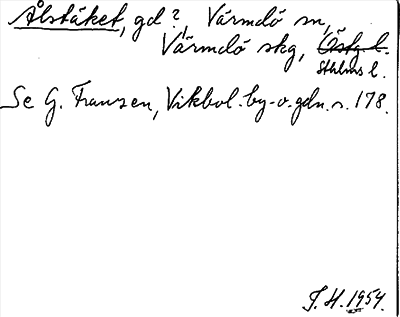 Ålstäket, gd?, Värmdö sn,
Värmdö skg, Östg. l.
Sthlms l.
Se G. Franzén, Vikbol. by- o. gdn. s. 178.
T. H. 1954.